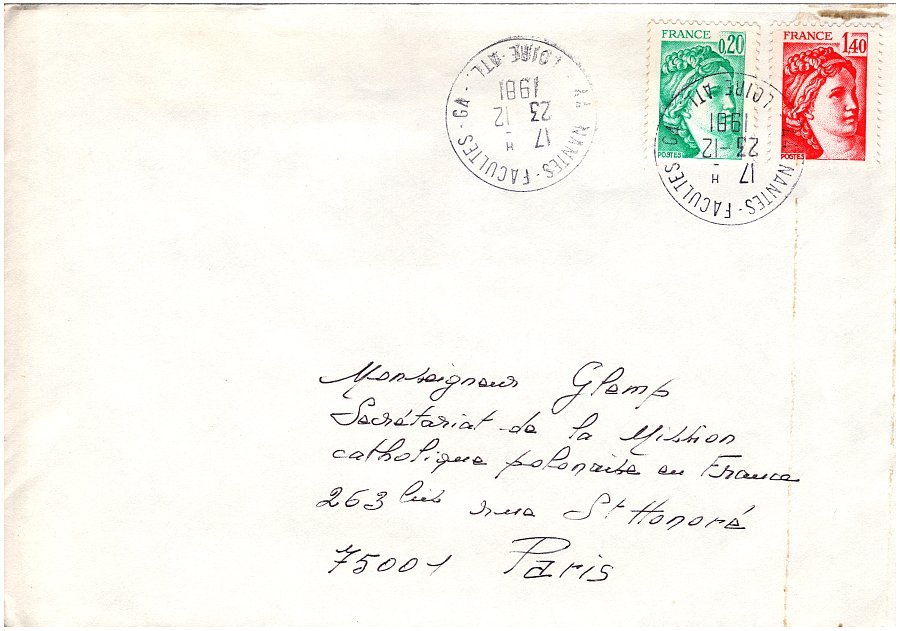 FRANCE 0,20
POSTES
FRANCE 1,40
POSTES
44 NANTES-FACULTES-GA - LOIRE ATL.
17 H
23-12
1981
44 NANTES-FACULTES-GA LOIRE ATL.
17 H
23-12
1981
Monseigneur Glemp
Secrétariat de la Mission
catholique polonaise en France
263 bis rue St Honoré
75001 Paris